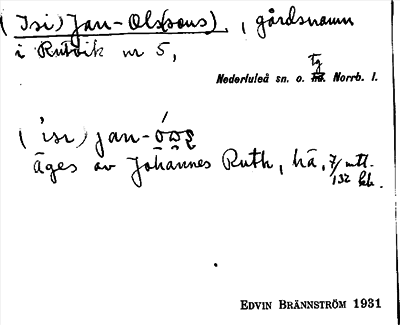 (Isi) Jan-Ols(sons), gårdsnamn
i Rutvik nr 5,
Tg
Nederluleå sn. o. hd. Norrb. l.
('isi) jan-
äges av Johannes Ruth, hä, 7/132 mtl.
EDVIN BRÄNNSTRÖM 1931